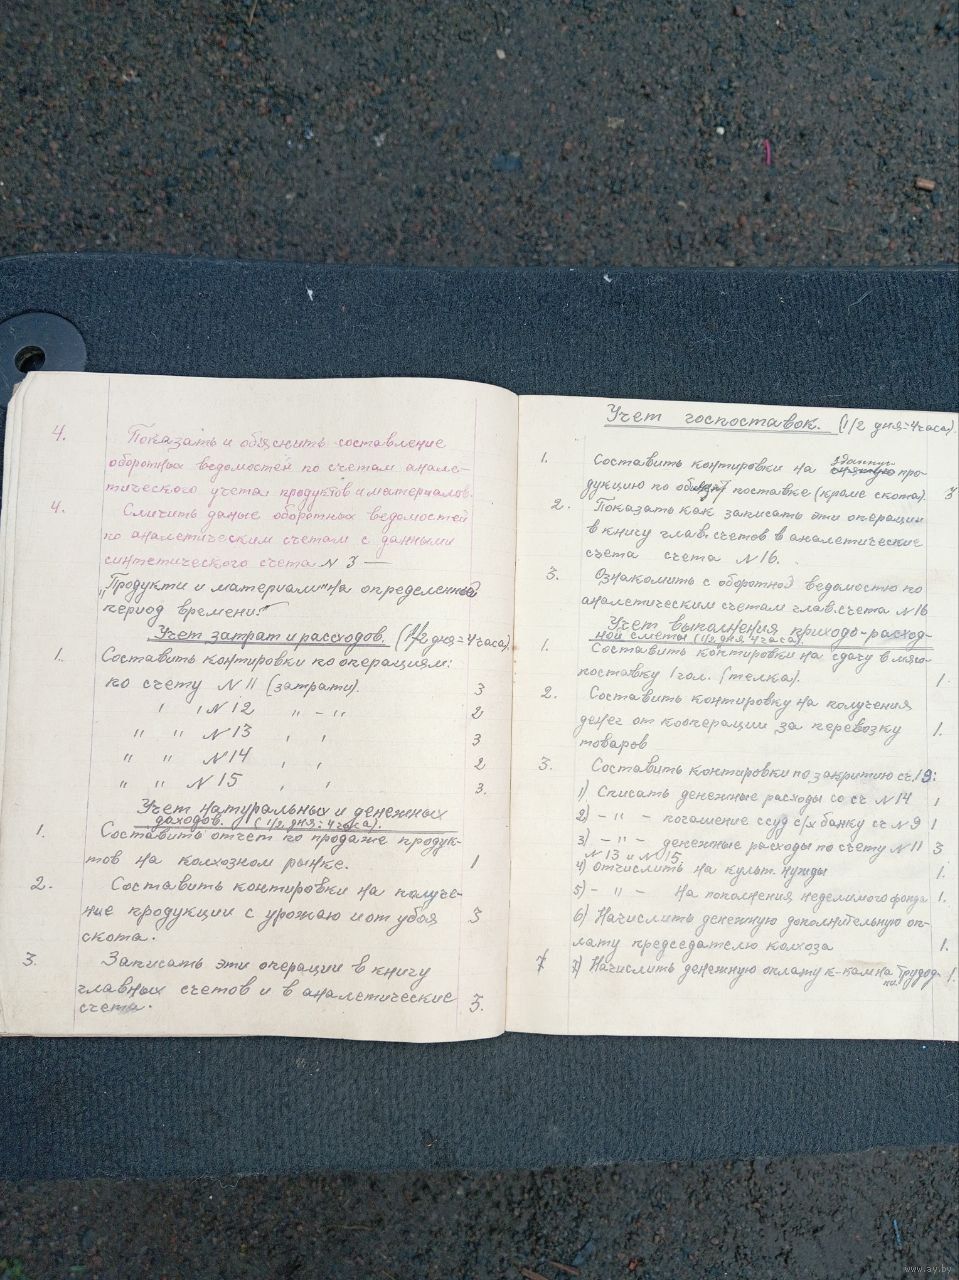 4. Показать и объяснить составление
оборотных ведомостей по счетам анале-
тического учета продуктов и материалов.
4. Сличить даные оборотных ведомостей
по аналетическим счетам с данными
синтетического счета № 3 —
"Продукти и материалы" на определенный
период времени.
Учет затрат и расходов. (1/2 дня = 4 часа).
1. Составить контировки по операциям:
по счету № 11 (затраты). 3
" " № 12 " - " 2
" " № 13 " " 3
" " № 14 " " 2
" " № 15 " " 3.
Учет натуральных и денежных
доходов. (1/2 дня = 4 часа).
1. Составить отчет по продаже продук-
тов на колхозном рынке. 1
2. Составить контировки на получе-
ние продукции с урожаю и от убоя 3
скота.
3. Записать эти операции в книгу
главных счетов и в аналетические
счета. 3.
Учет госпоставок. (1/2 дня = 4 часа).
1. Составить контировки на зданную про-
дукцию по поставке (кроме скота). 3
2. Показать как записать эти операции
в книгу глав. счетов в аналетические
счета счета № 16.
3. Ознакомить с оборотной ведомостью по
аналетическим счетам глав. счета № 16
Учет выполнения приходо-расход-
ной сметы (1/2 дня 4 часа).
1. Составить контировки на сдачу в мясо-
поставку 1 гол. (телка). 1.
2. Составить контировку на получения
денег от кооперации за перевозку 1.
товаров
3. Составить контировки по закритию сч. 19:
1) Списать денежные расходы со сч № 14 1
2) - " - погашение ссуд с/х банку сч № 9 1
3) - " - денежные расходы по счету № 11 3
№ 13 и № 15.
4) отчислить на культ. нужды 1.
5) - " - на пополнения неделимого фонда 1.
6) Начислить денежную дополнительную оп-
лату председателю колхоза 1.
7 7) Начислить денежную оплату к-кам на трудод- 1.
ни.
www.ay.by